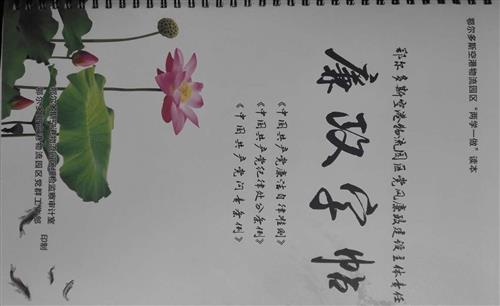 鄂尔多斯空港物流园区“两学一做”读本
鄂尔多斯空港物流园区党风廉政建设主体责任
廉政字帖
《中国共产党廉洁自律准则》
《中国共产党纪律处分条例》
《中国共产党问责条例》
鄂尔多斯空港物流园区纪检监察审计室
鄂尔多斯空港物流园区党群工作部
印制